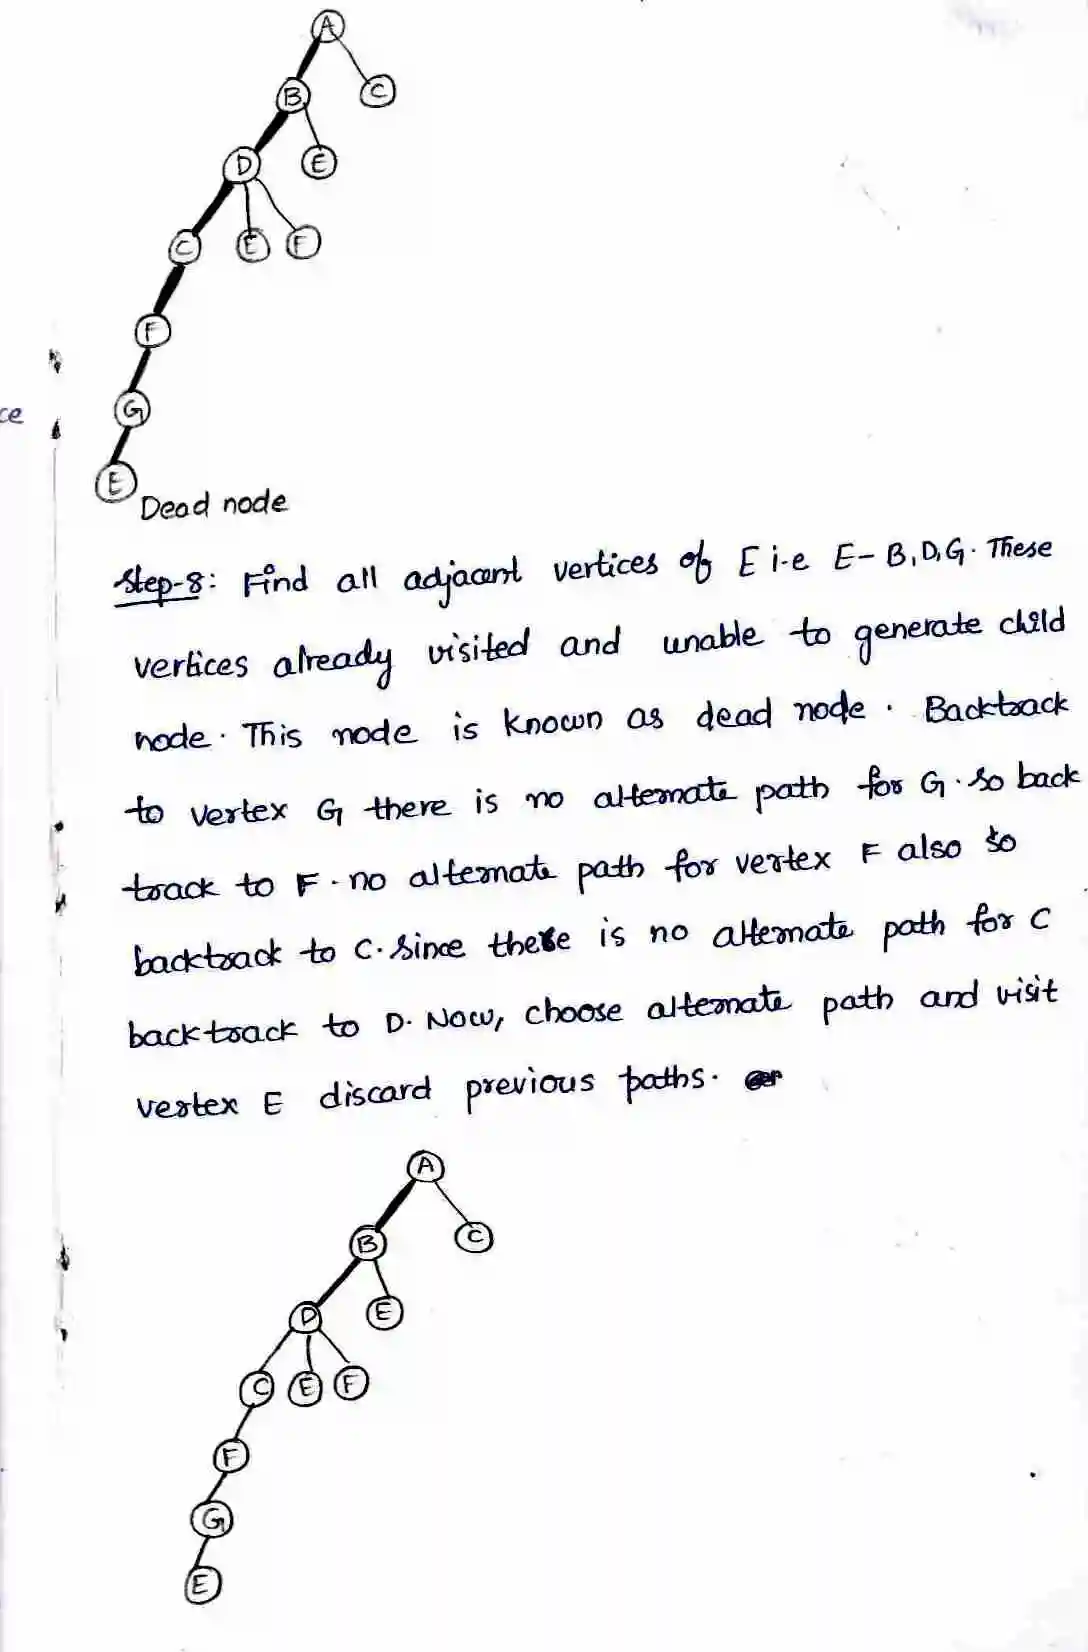 A
B C
D E
C E F
F
G
ce
E
Dead node
Step-8: Find all adjacent vertices of E i.e E- B,D,G. These
vertices already visited and unable to generate child
node. This node is known as dead node. Backtrack
to vertex G there is no alternate path for G. so back
track to F. no alternate path for vertex F also so
backtrack to C. Since there is no alternate path for C
backtrack to D. Now, choose alternate path and visit
vertex E discard previous paths.
A
B C
D E
C E F
F
G
E